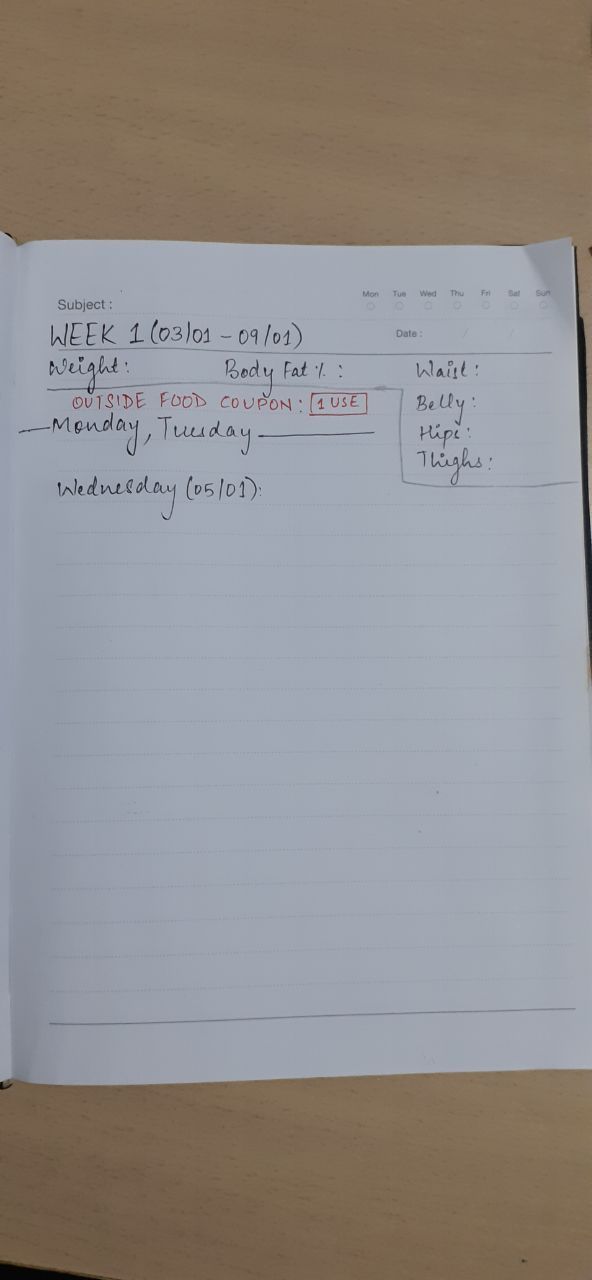 Mon Tue Wed Thu Fri Sat Sun
Subject :
WEEK 1 (03/01 - 09/01)
Date : / /
Weight: Body Fat % : Waist :
OUTSIDE FOOD COUPON: 1 USE
Belly :
Monday, Tuesday
Hips :
Thighs :
Wednesday (05/01):